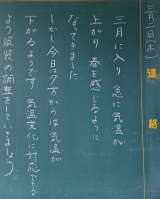 三月に入り 急に気温が
上がり 春を感じるように
なってきました
しかし今日夕方からは気温が
下がるようです 気温変化に対応できる
よう服装の調整をしていきましょう